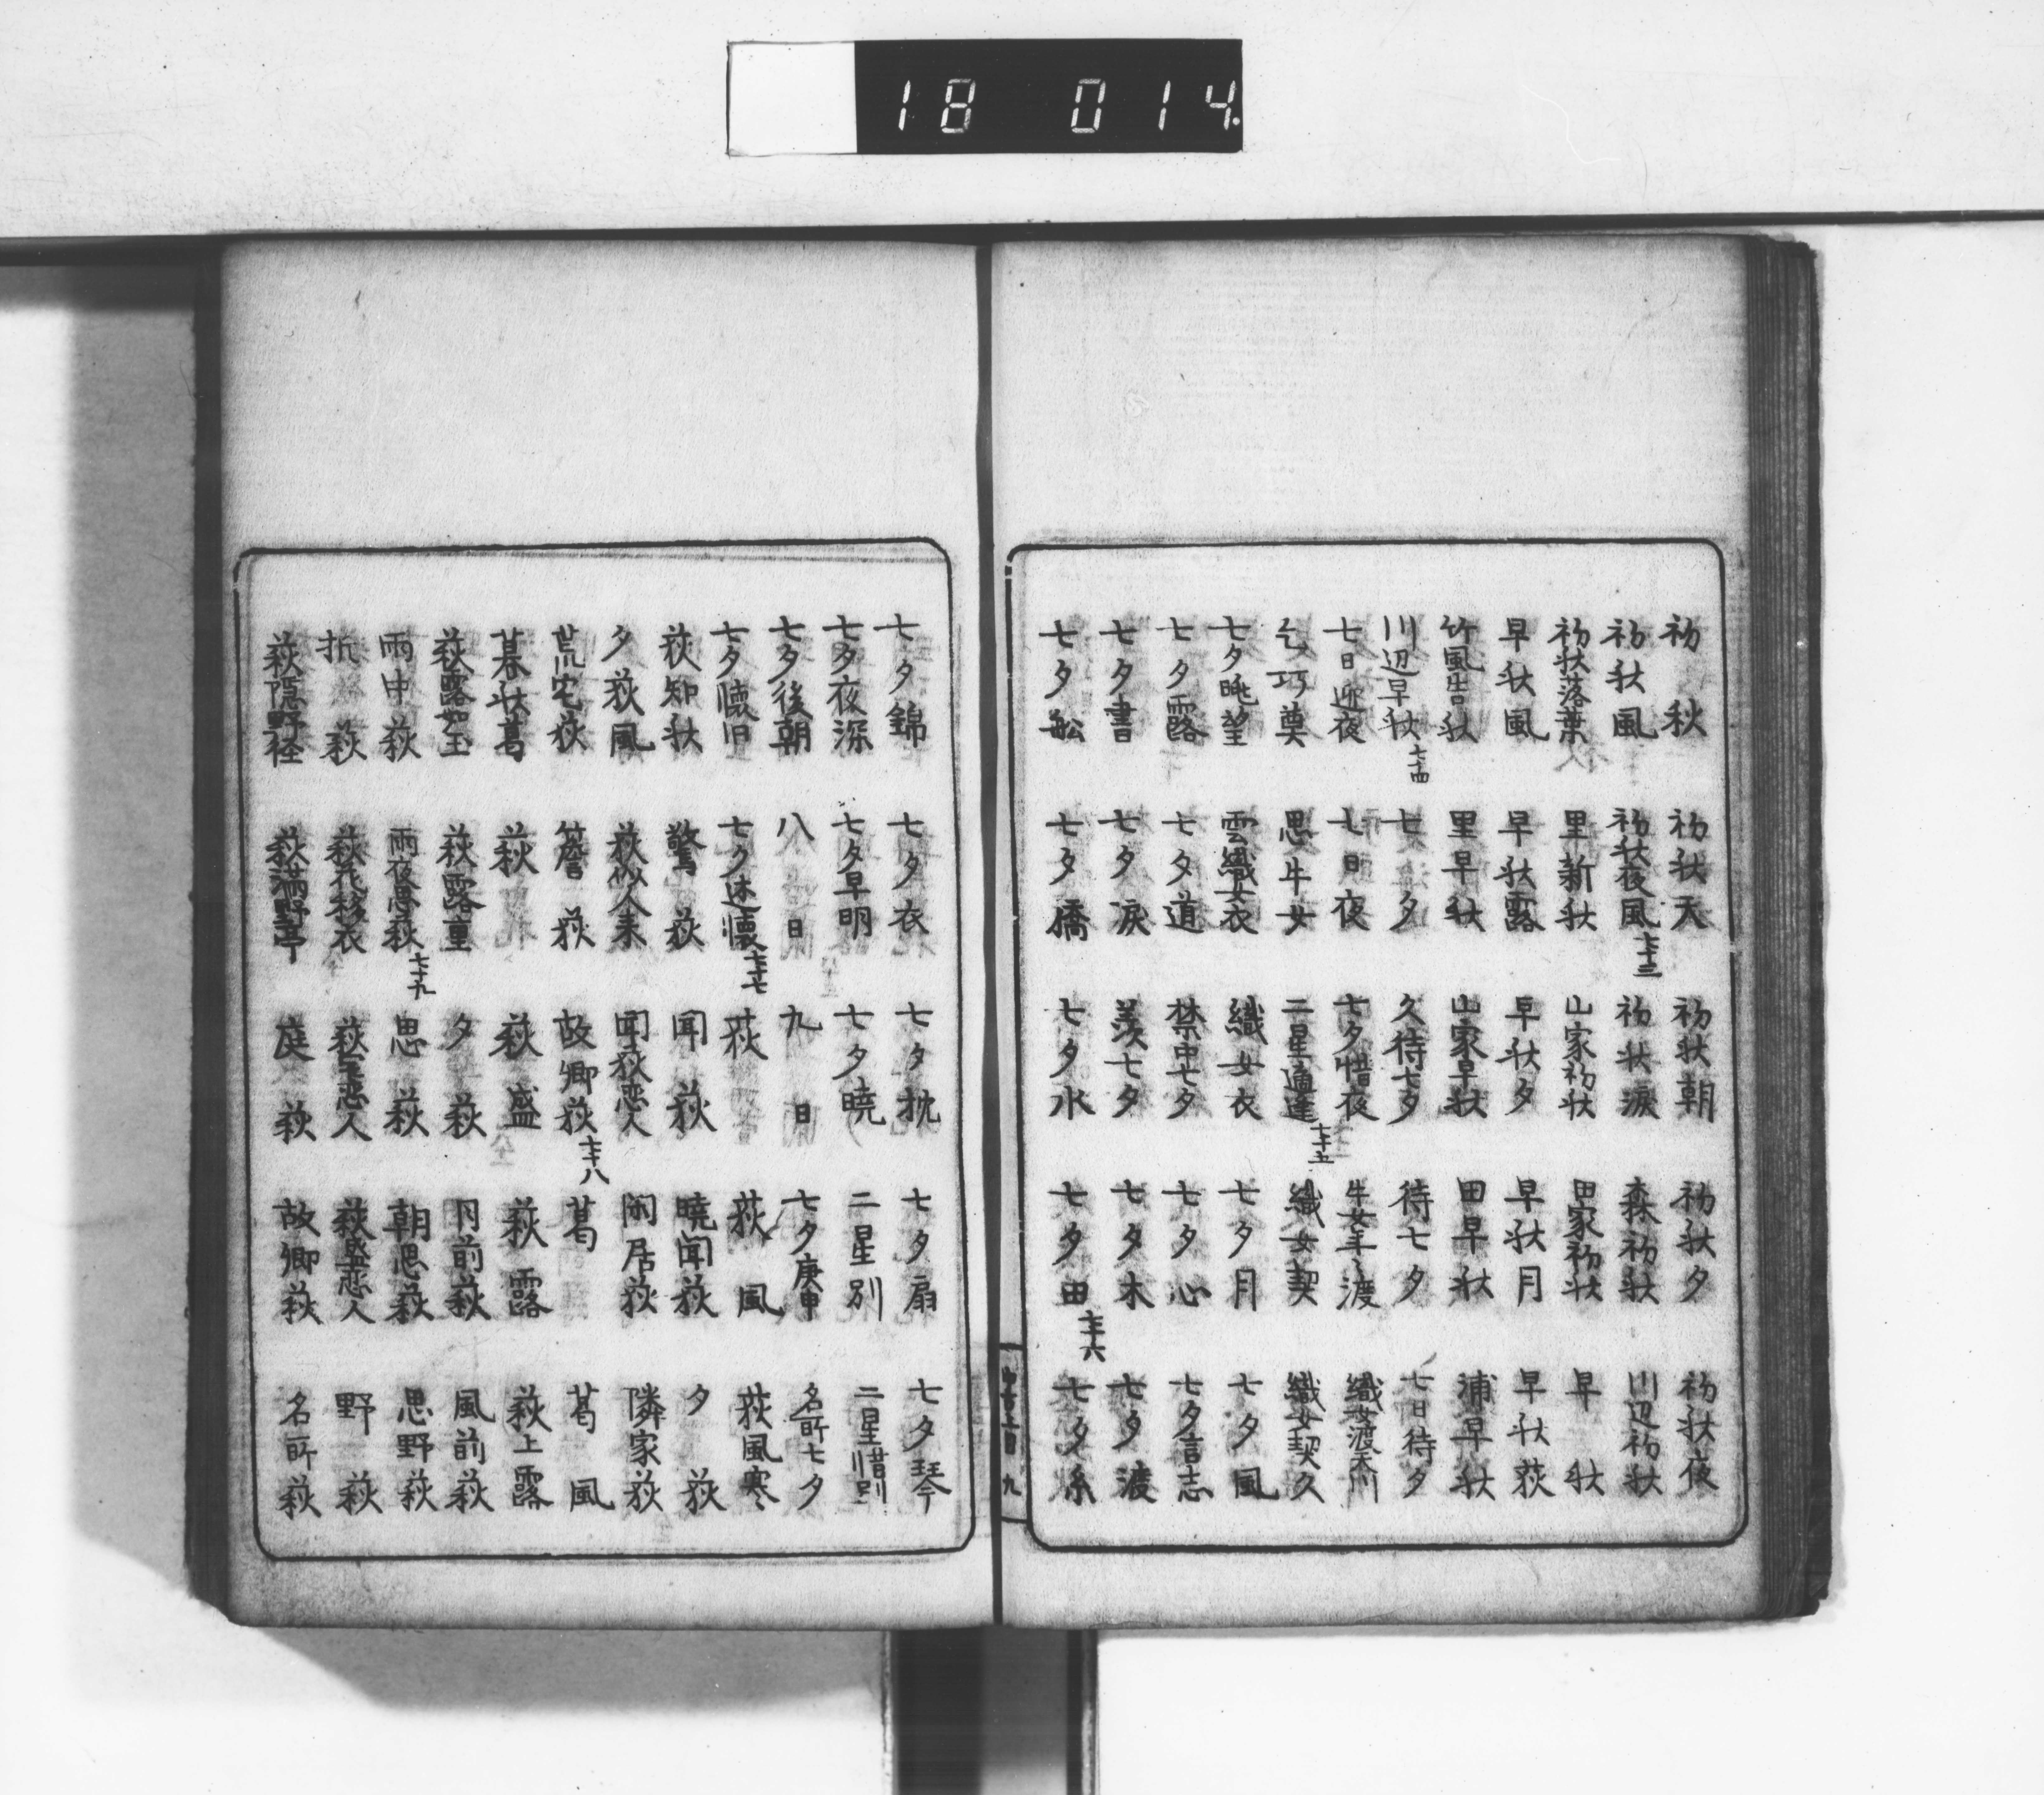 18 014.
初秋 初秋天 初秋朝 初秋夕 初秋夜
初秋風 初秋夜風 七十三 初秋涙 森初秋 川辺初秋
初秋落葉 里新秋 山家初秋 田家初秋 早秋
早秋風 早秋露 早秋夕 早秋月 早秋荻
竹風告秋 里早秋 山家早秋 田早秋 浦早秋
川辺早秋 七十四 七夕 久待七夕 待七夕 七日待夕
七日迎夜 七日夜 七夕惜夜 牛女年々渡 織女渡天川
乞巧奠 思牛女 二星適逢 七十五 織女契 織女契久
七夕眺望 雲織女衣 織女衣 七夕月 七夕風
七夕露 七夕道 禁中七夕 七夕心 七夕言志
七夕書 七夕涙 羨七夕 七夕木 七夕渡
七夕舩 七夕橋 七夕水 七夕田 七十六 七夕糸
九
七夕錦 七夕衣 七夕枕 七夕扇 七夕琴
七夕夜深 七夕早明 七夕暁 二星別 二星惜別
七夕後朝 八日 九日 七夕庚申 名所七夕
七夕懐旧 七夕述懐 七十七 荻 荻風 荻風寒
荻知秋 驚荻 聞荻 暁聞荻 夕荻
夕荻風 荻似人来 聞荻恋人 閑居荻 隣家荻
荒宅荻 簷荻 故郷荻 七十八 葛 葛風
暮秋葛 萩 萩盛 萩露 萩上露
萩露如玉 萩露重 夕萩 月前萩 風前萩
雨中萩 雨夜思萩 七十九 思萩 朝思萩 思野萩
折萩 萩花移衣 萩恋人 萩盛恋人 野萩
萩隠野径 萩満野亭 庭萩 故郷萩 名所萩